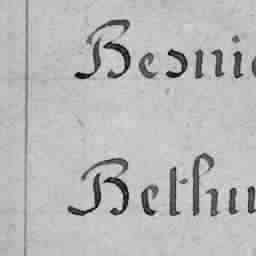 Besnie
Bethu